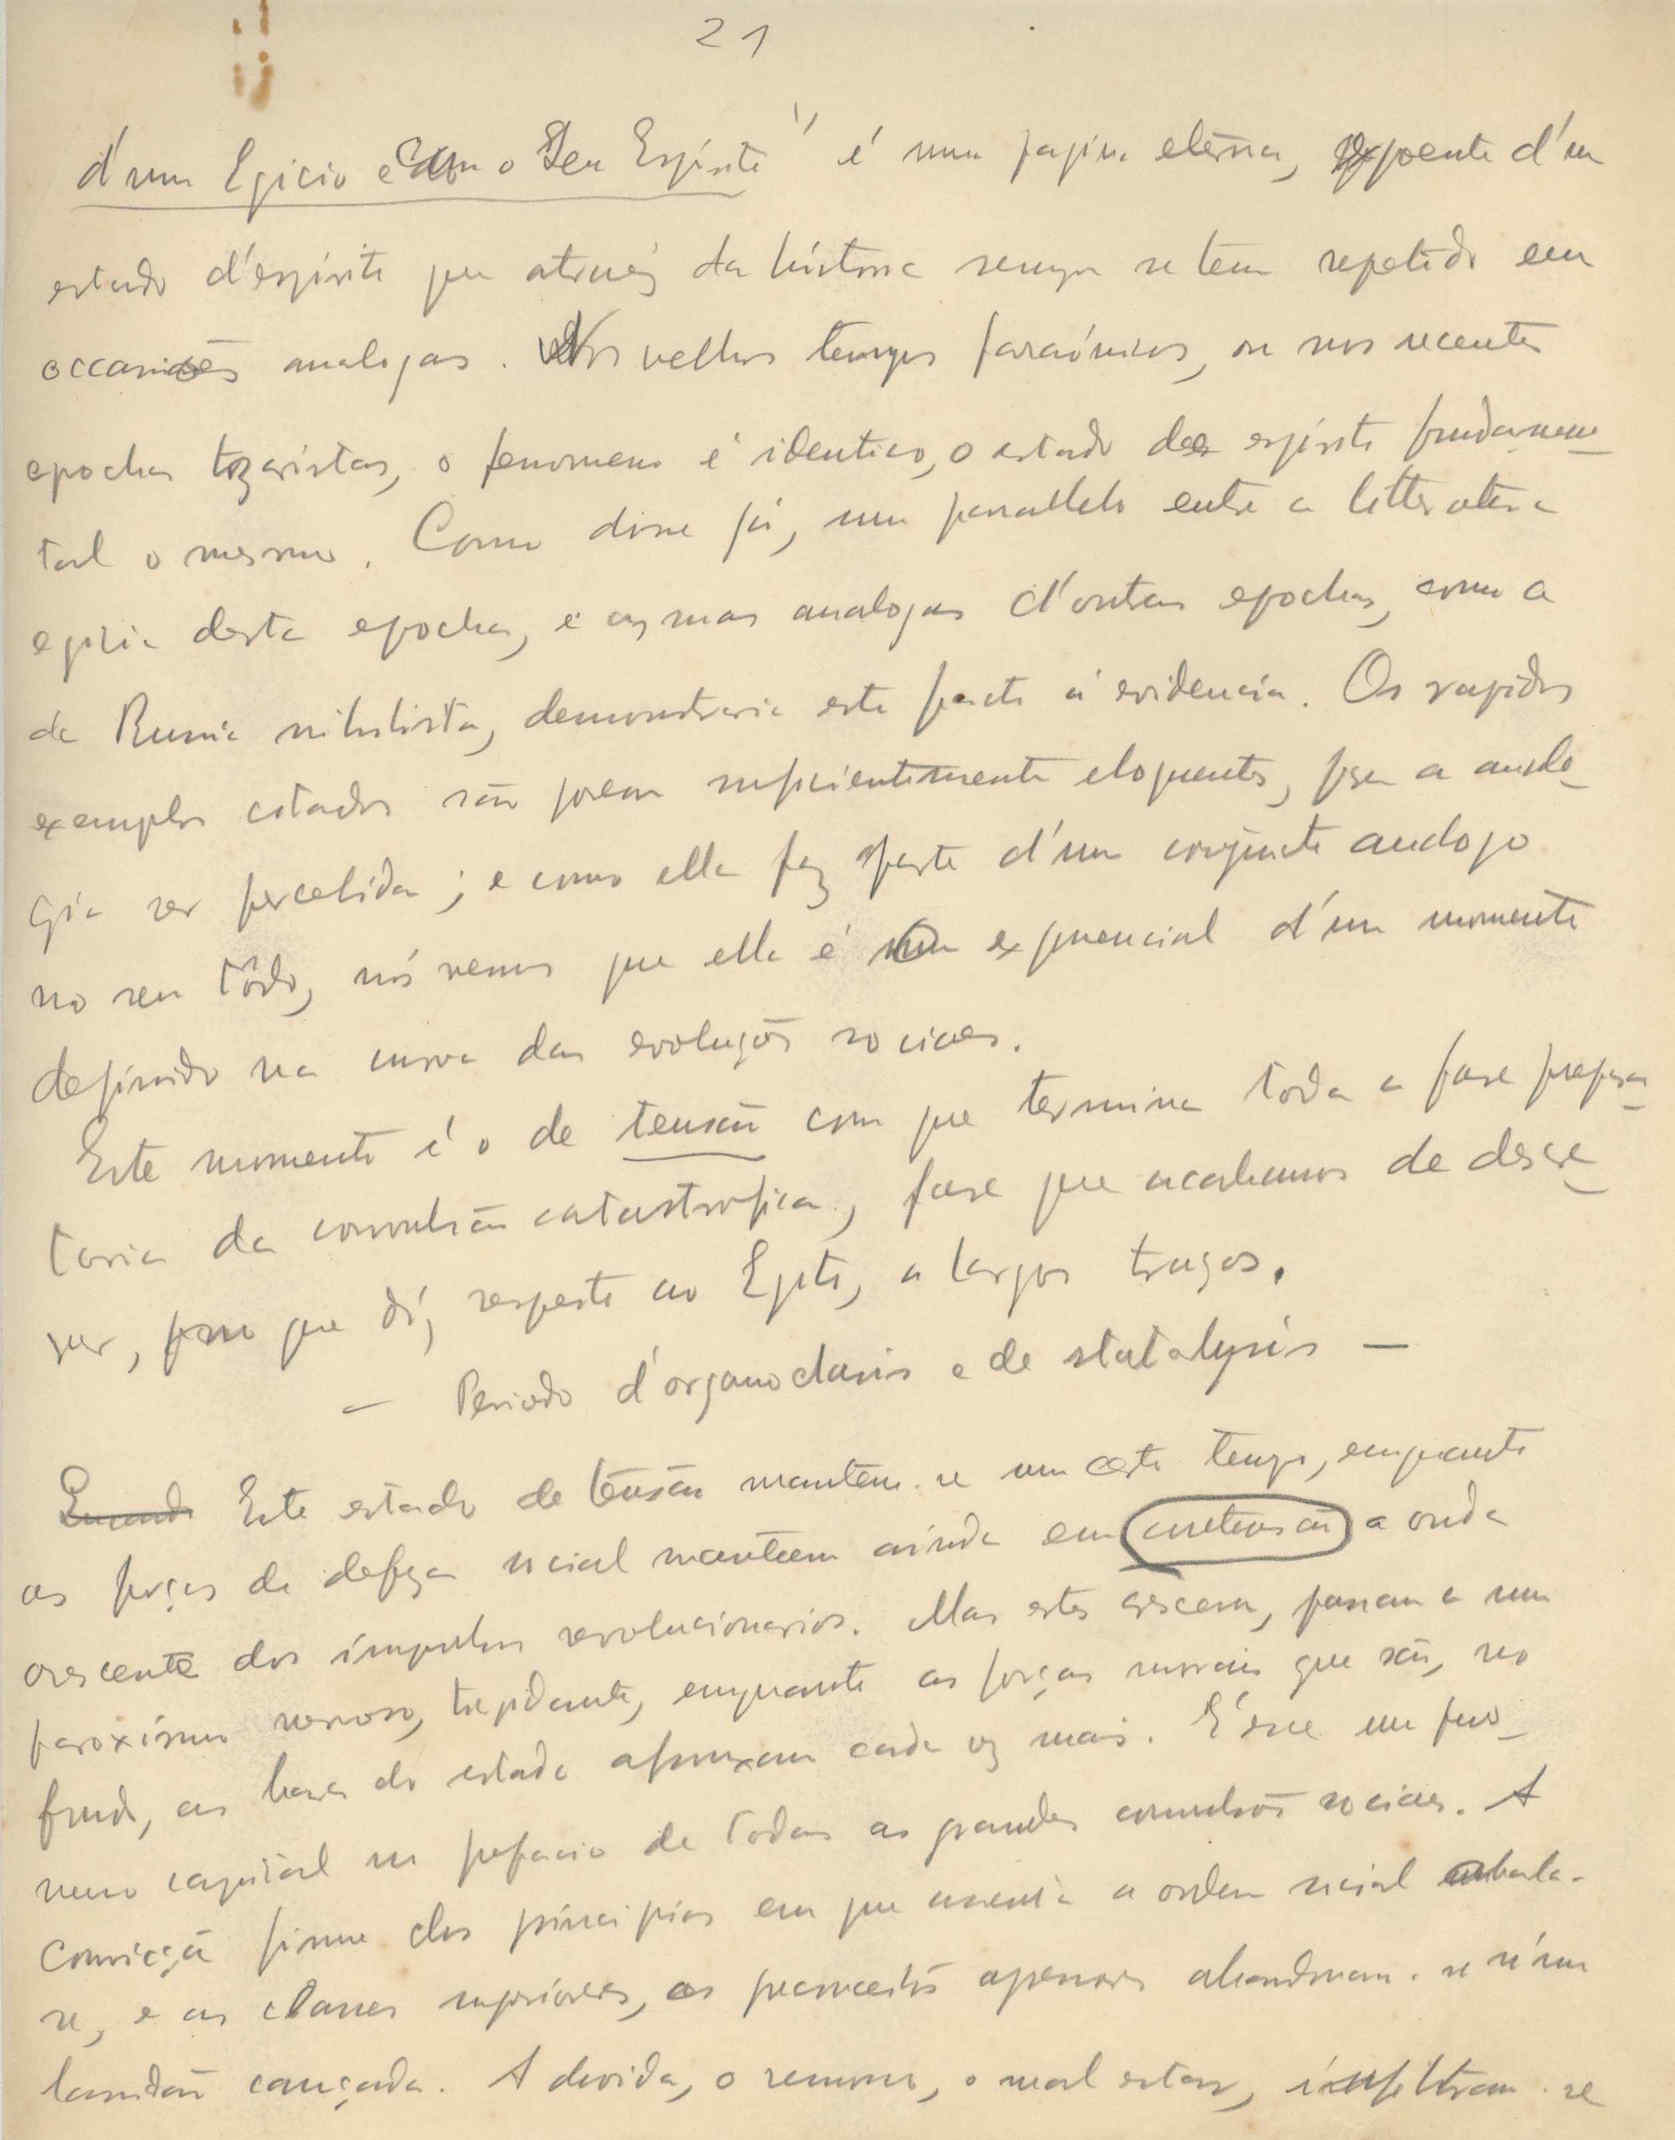 21
d'um Egicio e com o seu Espirito" é uma pagina eterna, expoente d'um
estado d'espirito que atravéz da historia sempre se tem repetido em
occasiões analogas. Nos velhos tempos faraónicos, ou nos recentes
epochas tzaristas, o fenomeno é identico, o estado de espirito fundamen-
tal o mesmo. Como disse já, um parallelo entre a litteratura
egipcia desta epocha, e as mas analogas d'outras epochas, como a
da Russia nihilista, demonstraria este facto á evidencia. Os rapidos
exemplos citados são porem suficientemente eloquentes, pra a analo-
gia ser percebida; e como ella faz parte d'um conjuncto analogo
no seu tôdo, nós vemos que ella é um exponencial d'um momento
definido na curva das evoluções sociaes.
Este momento é o de tensão com que termina toda a fase prepara-
toria da convulsão catastrofica, fase que acabamos de descre-
ver, pno que diz respeito ao Egito, a largos traços.
— Periodo d'organoclasis e de statalysis —
Quando Este estado de tensão mantem-se um certo tempo, emquanto
as forças de defeza social mantêem ainda em contensão a onda
crescente dos impulsos revolucionarios. Mas estes crescem, passam a um
paroxismo nervoso, trepidante, emquanto as forças moraes que são, no
fundo, as bases do estado afrouxam cada vez mais. É esse um feno-
meno capital no prefacio de todas as grandes convulsões sociaes. A
convicção firme dos principios em que assenta a ordem social abala-
se, e as classes superiores, as possuidoras abandonam-se n'uma
lassidão cançada. A duvida, o remorso, o mal estar, infiltram-se